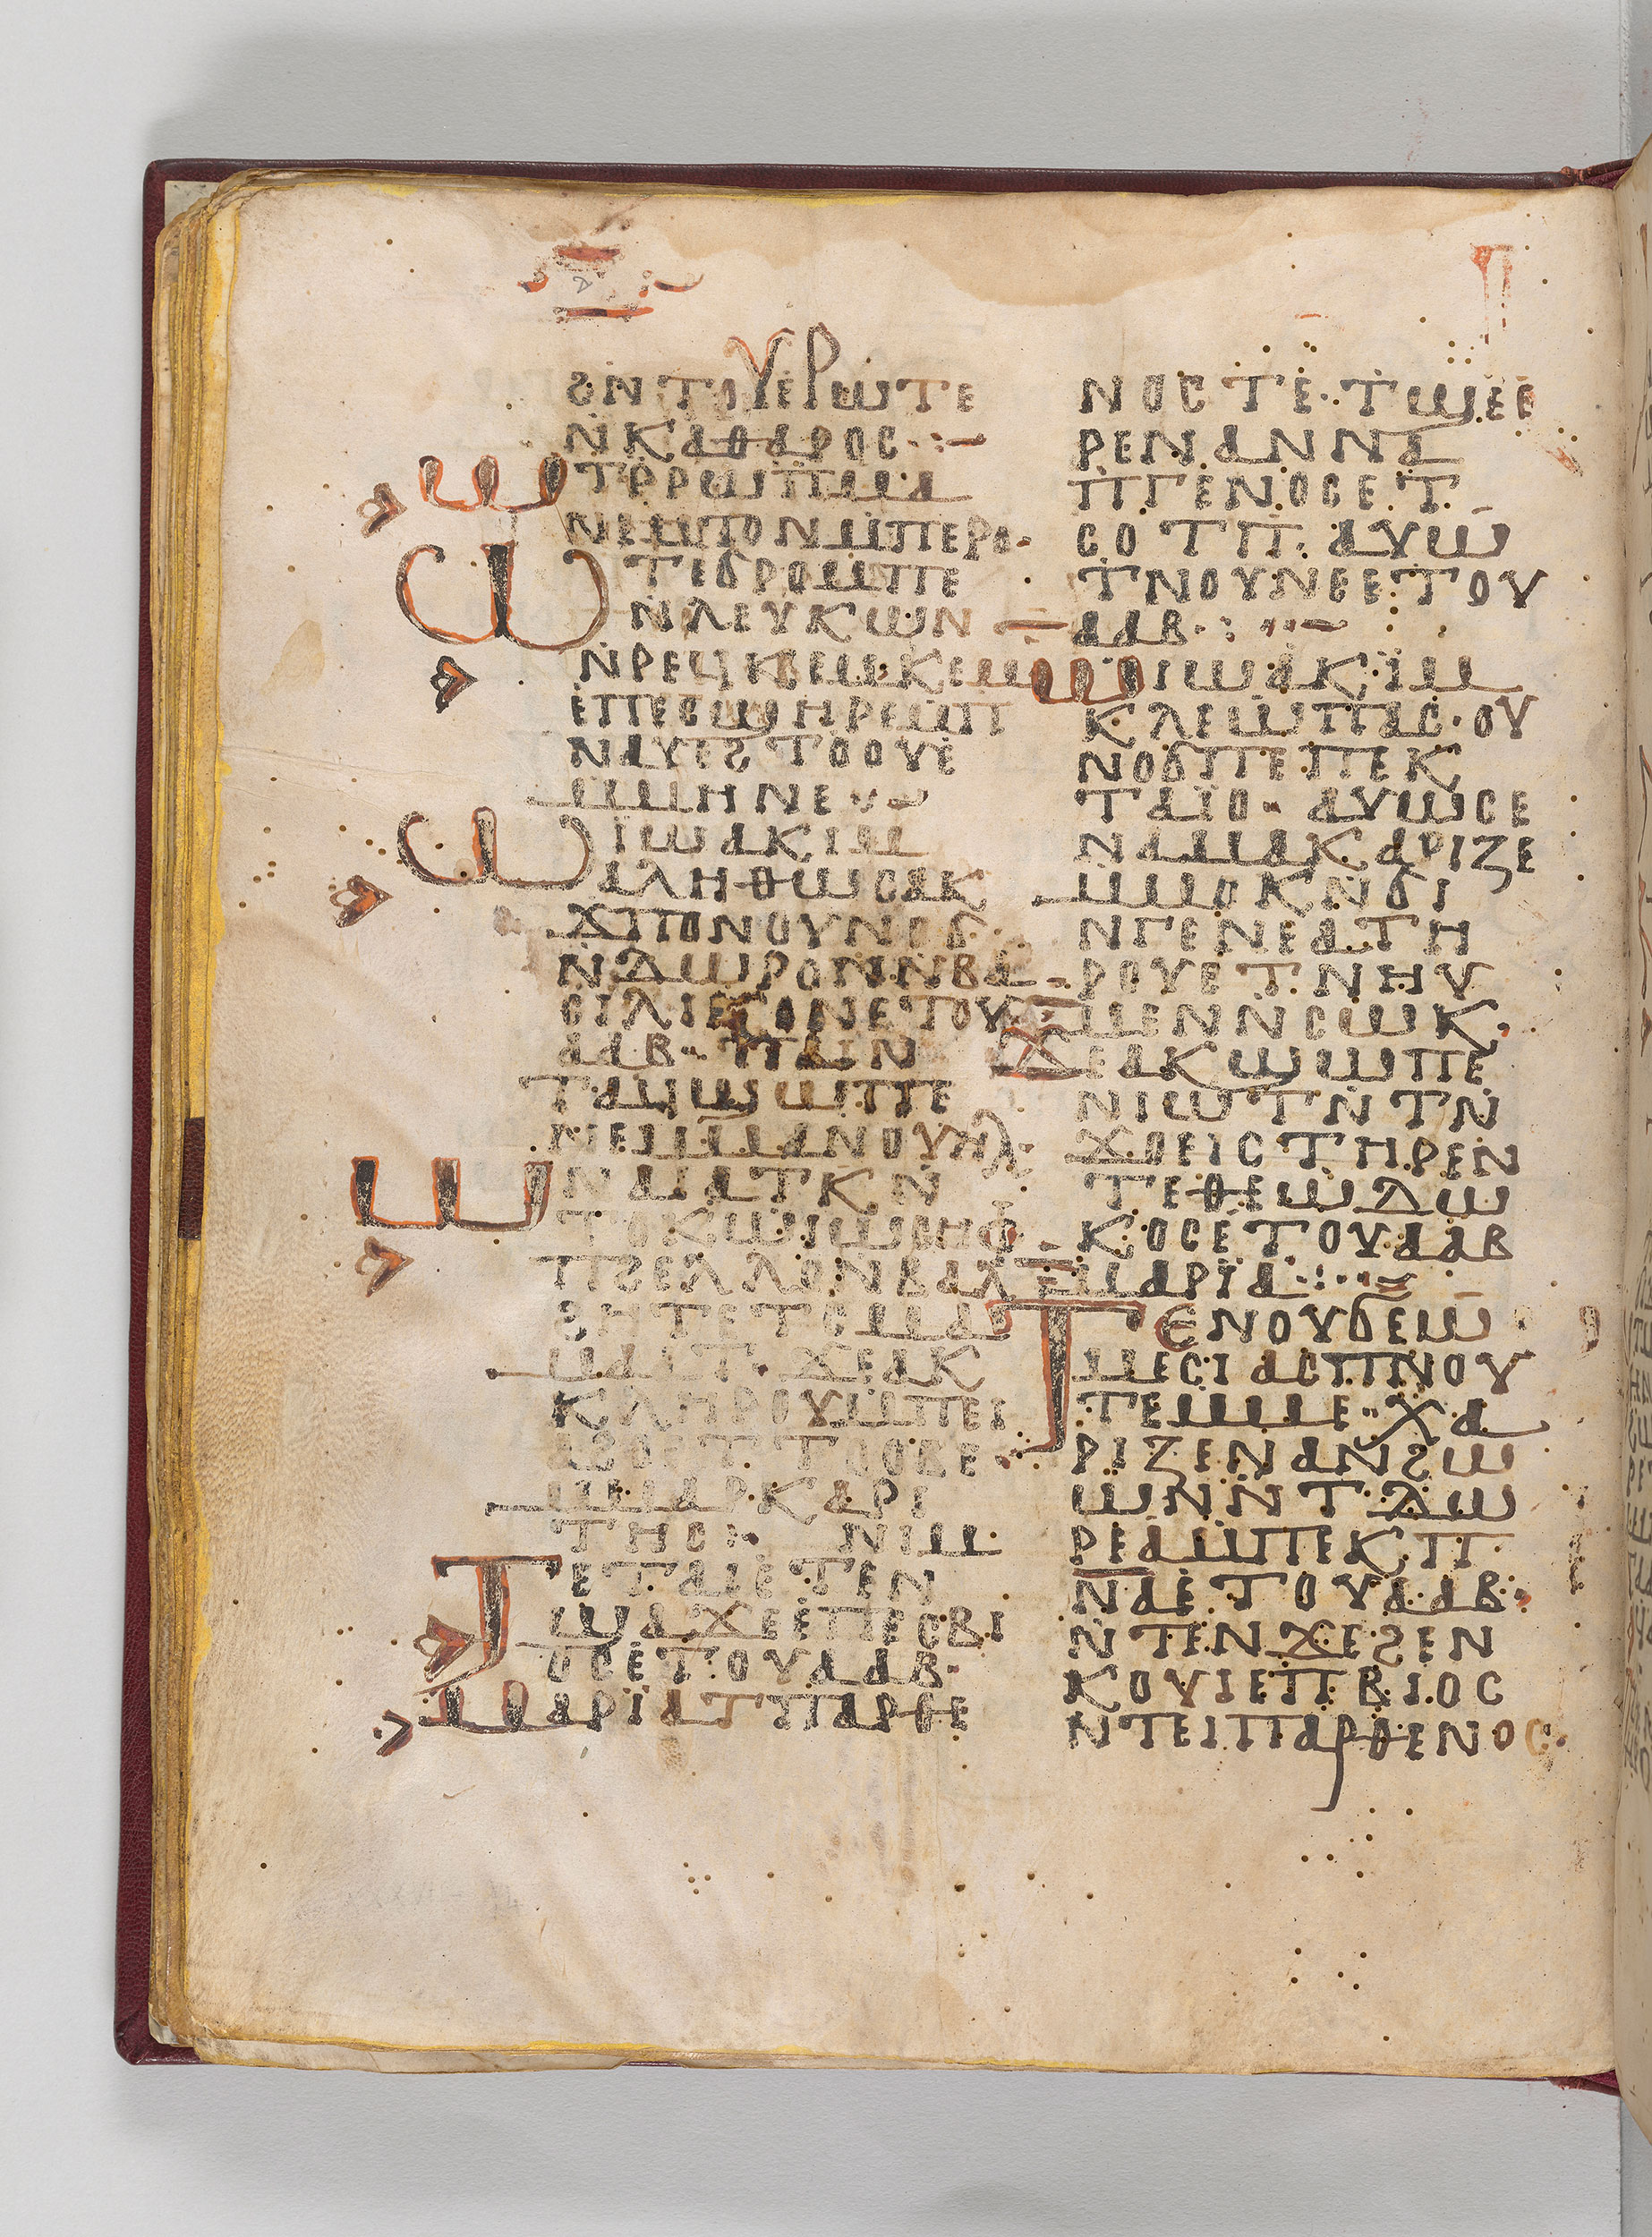 ϨⲚⲦⲞⲨⲈⲢⲰⲦⲈ
ⲚⲔⲀⲐⲀⲢⲟⲥ
ⲰⲦⲢⲢⲰⲙⲡⲙⲁ
ⲚⲈⲘⲦⲞⲚⲘⲠⲈⲢⲓ
ⲰⲦⲈϬⲢⲞⲘⲠⲈ
ⲚⲖⲈⲨⲔⲰⲚ
ⲚⲢⲈϤⲔⲂⲈⲘⲔⲈⲘ
ⲈⲠⲈⲤϢⲎⲢⲈⲘⲠ
ⲚⲀⲨⲈϨⲦⲞⲞⲨⲈ
ⲘⲘⲎⲚⲈ
ⲰⲒⲰⲀⲔⲒⲘ
ⲀⲖⲎⲐⲰⲤⲀⲔ
ϪⲠⲞⲚⲞⲨⲚⲞϬ
ⲚⲆⲰⲢⲞⲚⲚⲂⲀ
ⲤⲒⲖⲒⲔⲞⲚⲈⲦⲞⲨ
ⲀⲀⲂ ⲠⲀⲒⲚ
ⲦⲀϤϢⲰⲠⲈ
ⲚⲈⲘⲘⲀⲚⲞⲨⲎⲖ
ⲰⲚⲀⲒⲀⲦⲔⲚ
ⲦⲞⲔⲰⲒⲰⲤⲎⲪ
ⲠϨⲈⲖⲖⲞⲚⲂⲀⲖ
ϨⲎⲦⲈⲦⲤⲘⲀ
ⲘⲀⲀⲦ ϪⲈⲀⲔ
ⲔⲖⲎⲢⲞⲨⲘⲠⲈⲒ
ⲀϨⲞⲈⲦⲦⲞⲞⲂⲈ
ⲘⲘⲀⲢⲔⲀⲢⲒ
ⲦⲎⲤ ⲚⲒⲘ
ⲠⲈⲦⲀⲒⲈⲦⲈⲚ
ϢⲀϪⲈⲈⲠⲈⲤⲂⲒ
ⲞⲤⲈⲦⲞⲨⲀⲀⲂ
ⲘⲀⲢⲒⲀⲦⲠⲀⲢⲐⲈ
ⲚⲞⲤⲦⲈ ⲦϢⲈⲈ
ⲢⲈⲚⲀⲚⲚⲀ
ⲠⲄⲈⲚⲞⲤⲈⲦ
ⲤⲞⲦⲠ ⲀⲨⲰ
ⲦⲚⲞⲨⲚⲈⲈⲦⲞⲨ
ⲀⲀⲂ
ⲰⲒⲰⲀⲔⲒⲘ
ⲔⲖⲈⲰⲠⲀⲤ ⲞⲨ
ⲚⲞϬⲠⲈⲠⲈⲔ
ⲦⲀⲒⲞ ⲀⲨⲰⲤⲈ
ⲚⲀⲘⲀⲔⲀⲢⲒⲌⲈ
ⲘⲘⲞⲔⲚϬⲒ
ⲚⲄⲈⲚⲈⲀⲦⲎ
ⲢⲞⲨⲈⲦⲚⲎⲨ
ⲘⲈⲚⲚⲤⲰⲔ
ϪⲈⲀⲔϢⲰⲠⲈ
ⲚⲒⲰⲦⲚⲦⲚ
ϪⲞⲈⲒⲤⲦⲎⲢⲈⲚ
ⲦⲈⲐⲈⲰⲆⲰ
ⲔⲞⲤⲈⲦⲞⲨⲀⲀⲂ
ⲘⲀⲢⲒⲀ
ⲦⲈⲚⲞⲨϬⲈⲰ
ⲘⲈⲤⲒⲀⲤⲠⲚⲞⲨ
ⲦⲈⲘⲘⲈ ⲬⲀ
ⲢⲒⲌⲈⲚⲀⲚϨⲰ
ⲰⲚⲚⲦⲆⲰ
ⲢⲈⲀⲘⲠⲈⲔⲠ
ⲚⲀⲈⲦⲞⲨⲀⲀⲂ
ⲚⲦⲈⲚϪⲈϨⲈⲚ
ⲔⲞⲨⲒⲈⲠⲂⲒⲞⲤ
ⲚⲦⲈⲒⲠⲀⲢⲐⲈⲚⲞⲤ